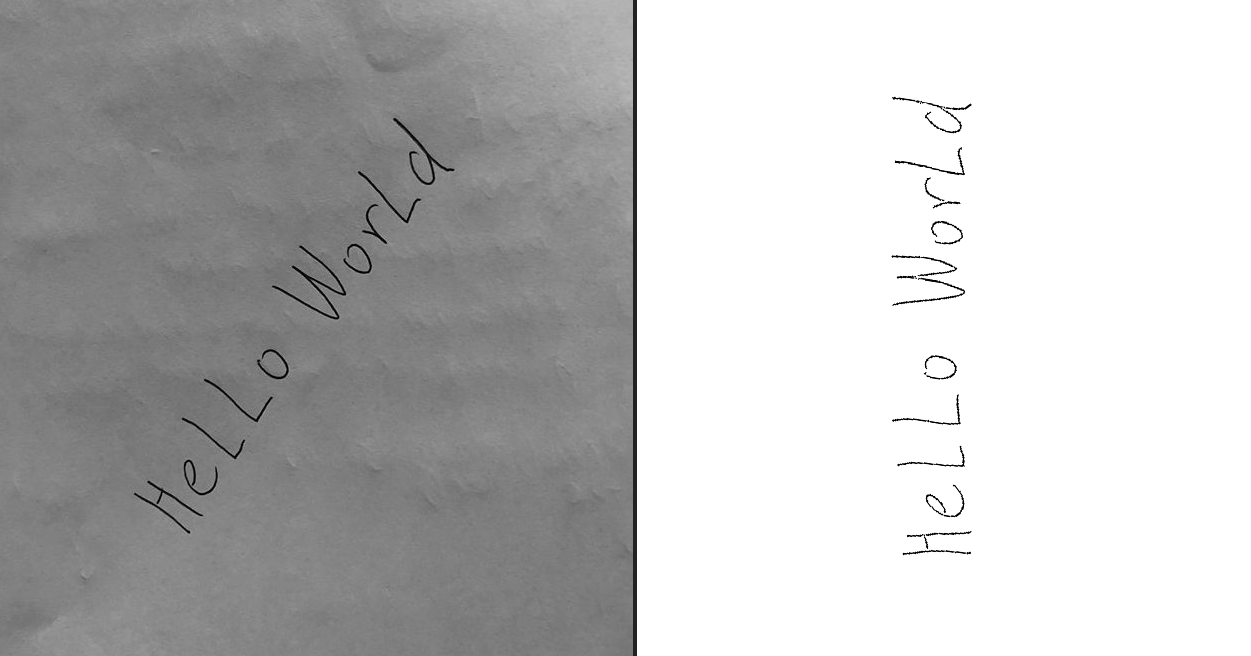 HeLLo WorLd
HeLLo WorLd